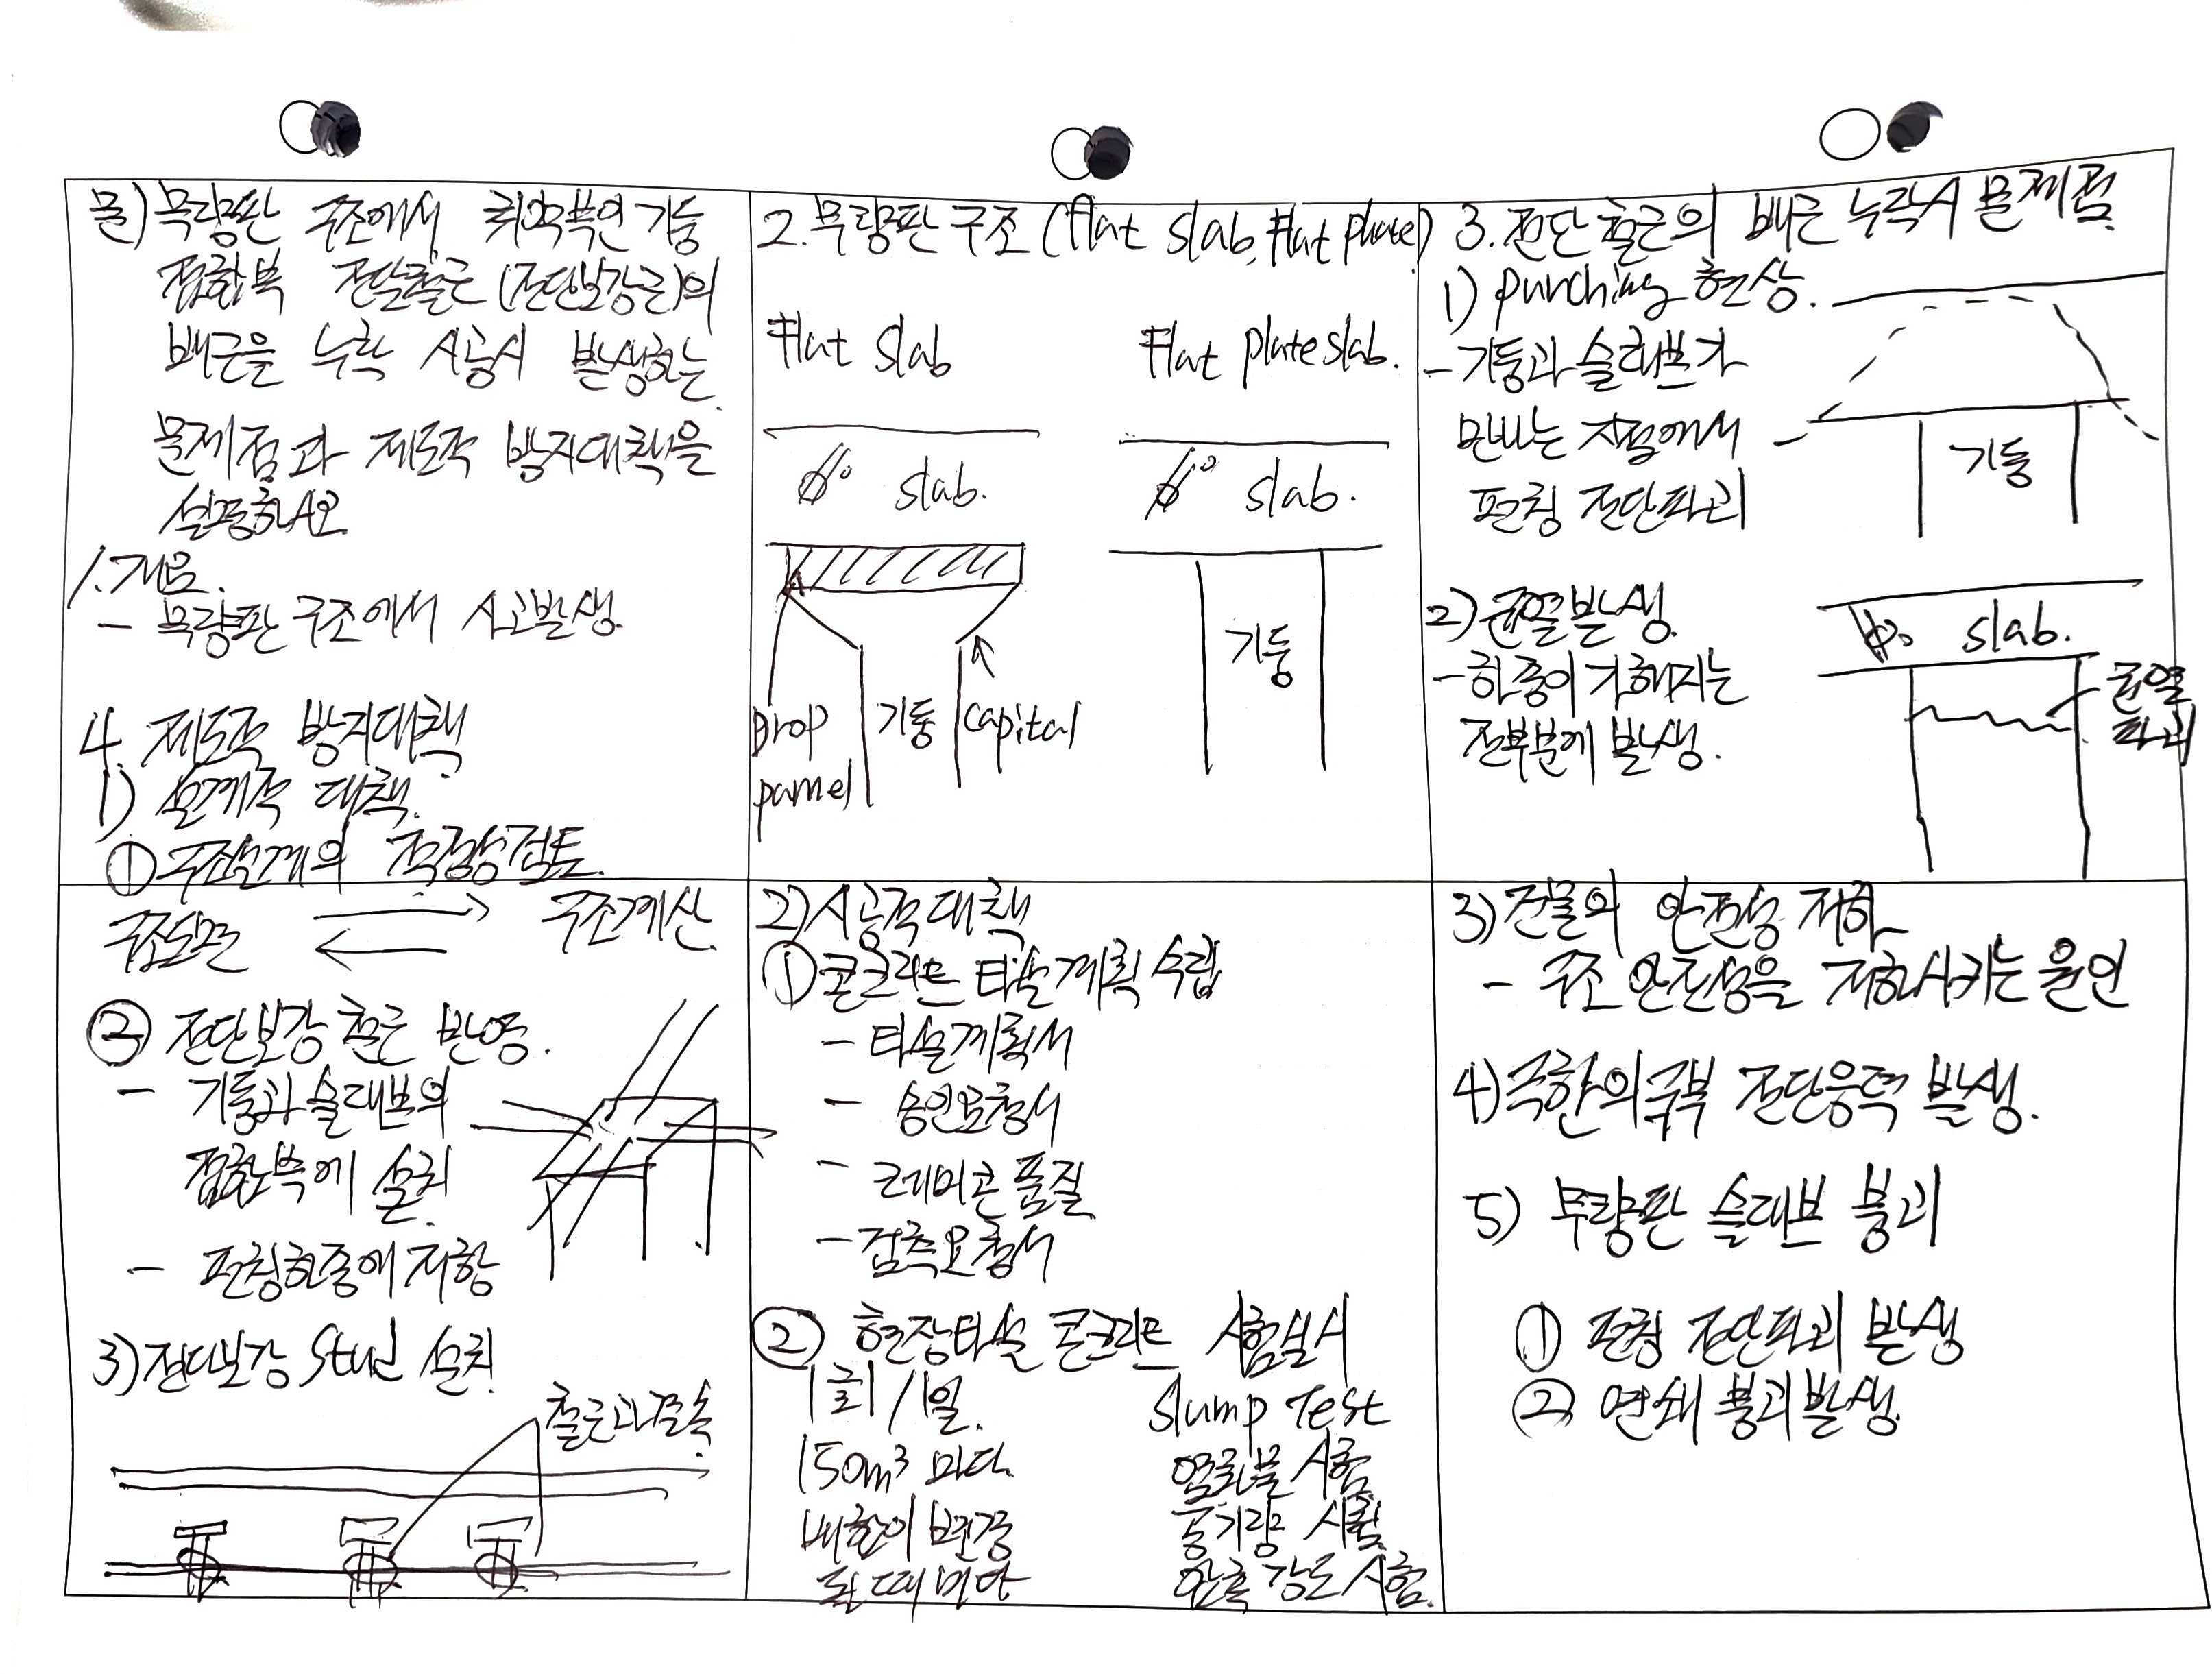 문) 무량판 구조에서 취약부인 기둥
접합부 전단철근(전단보강근)의
배근을 누락 시공시 발생하는
문제점과 제도적 방지대책을
설명하시오
1. 개요.
- 무량판 구조에서 사고발생.
4. 제도적 방지대책
1) 설계적 대책.
① 구조설계의 적정성검토.
2. 무량판 구조 (flat slab, flat plate)
Flat slab
Flat plate slab.
slab.
slab.
기둥
Drop
pamel
기둥
capital
3. 전단철근의 배근 누락시 문제점
1) punching 현상.
- 기둥과 슬래브가
만나는 지점에서
펀칭 전단파괴
기둥
2) 균열발생.
- 하중이 가해지는
전부분에 발생.
slab.
균열
파괴
구조도면
구조계산.
② 전단보강 철근 반영.
- 기둥과 슬래브의
접합부에 설치.
- 펀칭하중에 저항
3) 전단보강 Stud 설치
철근과 결속
2) 시공적 대책
① 콘크리트 타설계획 수립
- 타설계획서
- 승인요청서
- 레미콘 품질
- 검측요청서
② 현장타설 콘크리트 시험실시
1회/1일.
150m³ 마다.
배합이 변경
될 때마다
Slump Test
염화물 시험.
공기량 시험.
압축강도 시험.
3) 건물의 안전성 저하
- 구조 안전성을 저하시키는 원인
4) 극한의 국부 전단응력 발생.
5) 무량판 슬래브 붕괴
① 펀칭 전단파괴 발생
② 연쇄 붕괴발생.